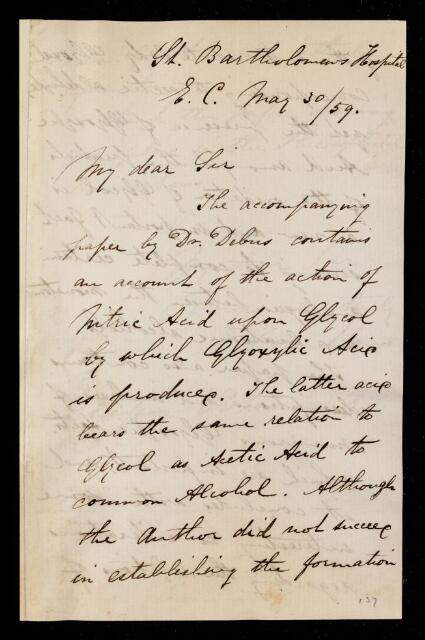 St. Bartholomews Hospital
E. C. May 30/59.
My dear Sir
The accompanying
paper by Dr. Debus contains
an account of the action of
Nitric Acid upon Glycol
by which Glyoxylic Acid
is produced. The latter acid
bears the same relation to
Glycol as Acetic Acid to
common Alcohol. Although
the Author did not succeed
in establishing the formation
137